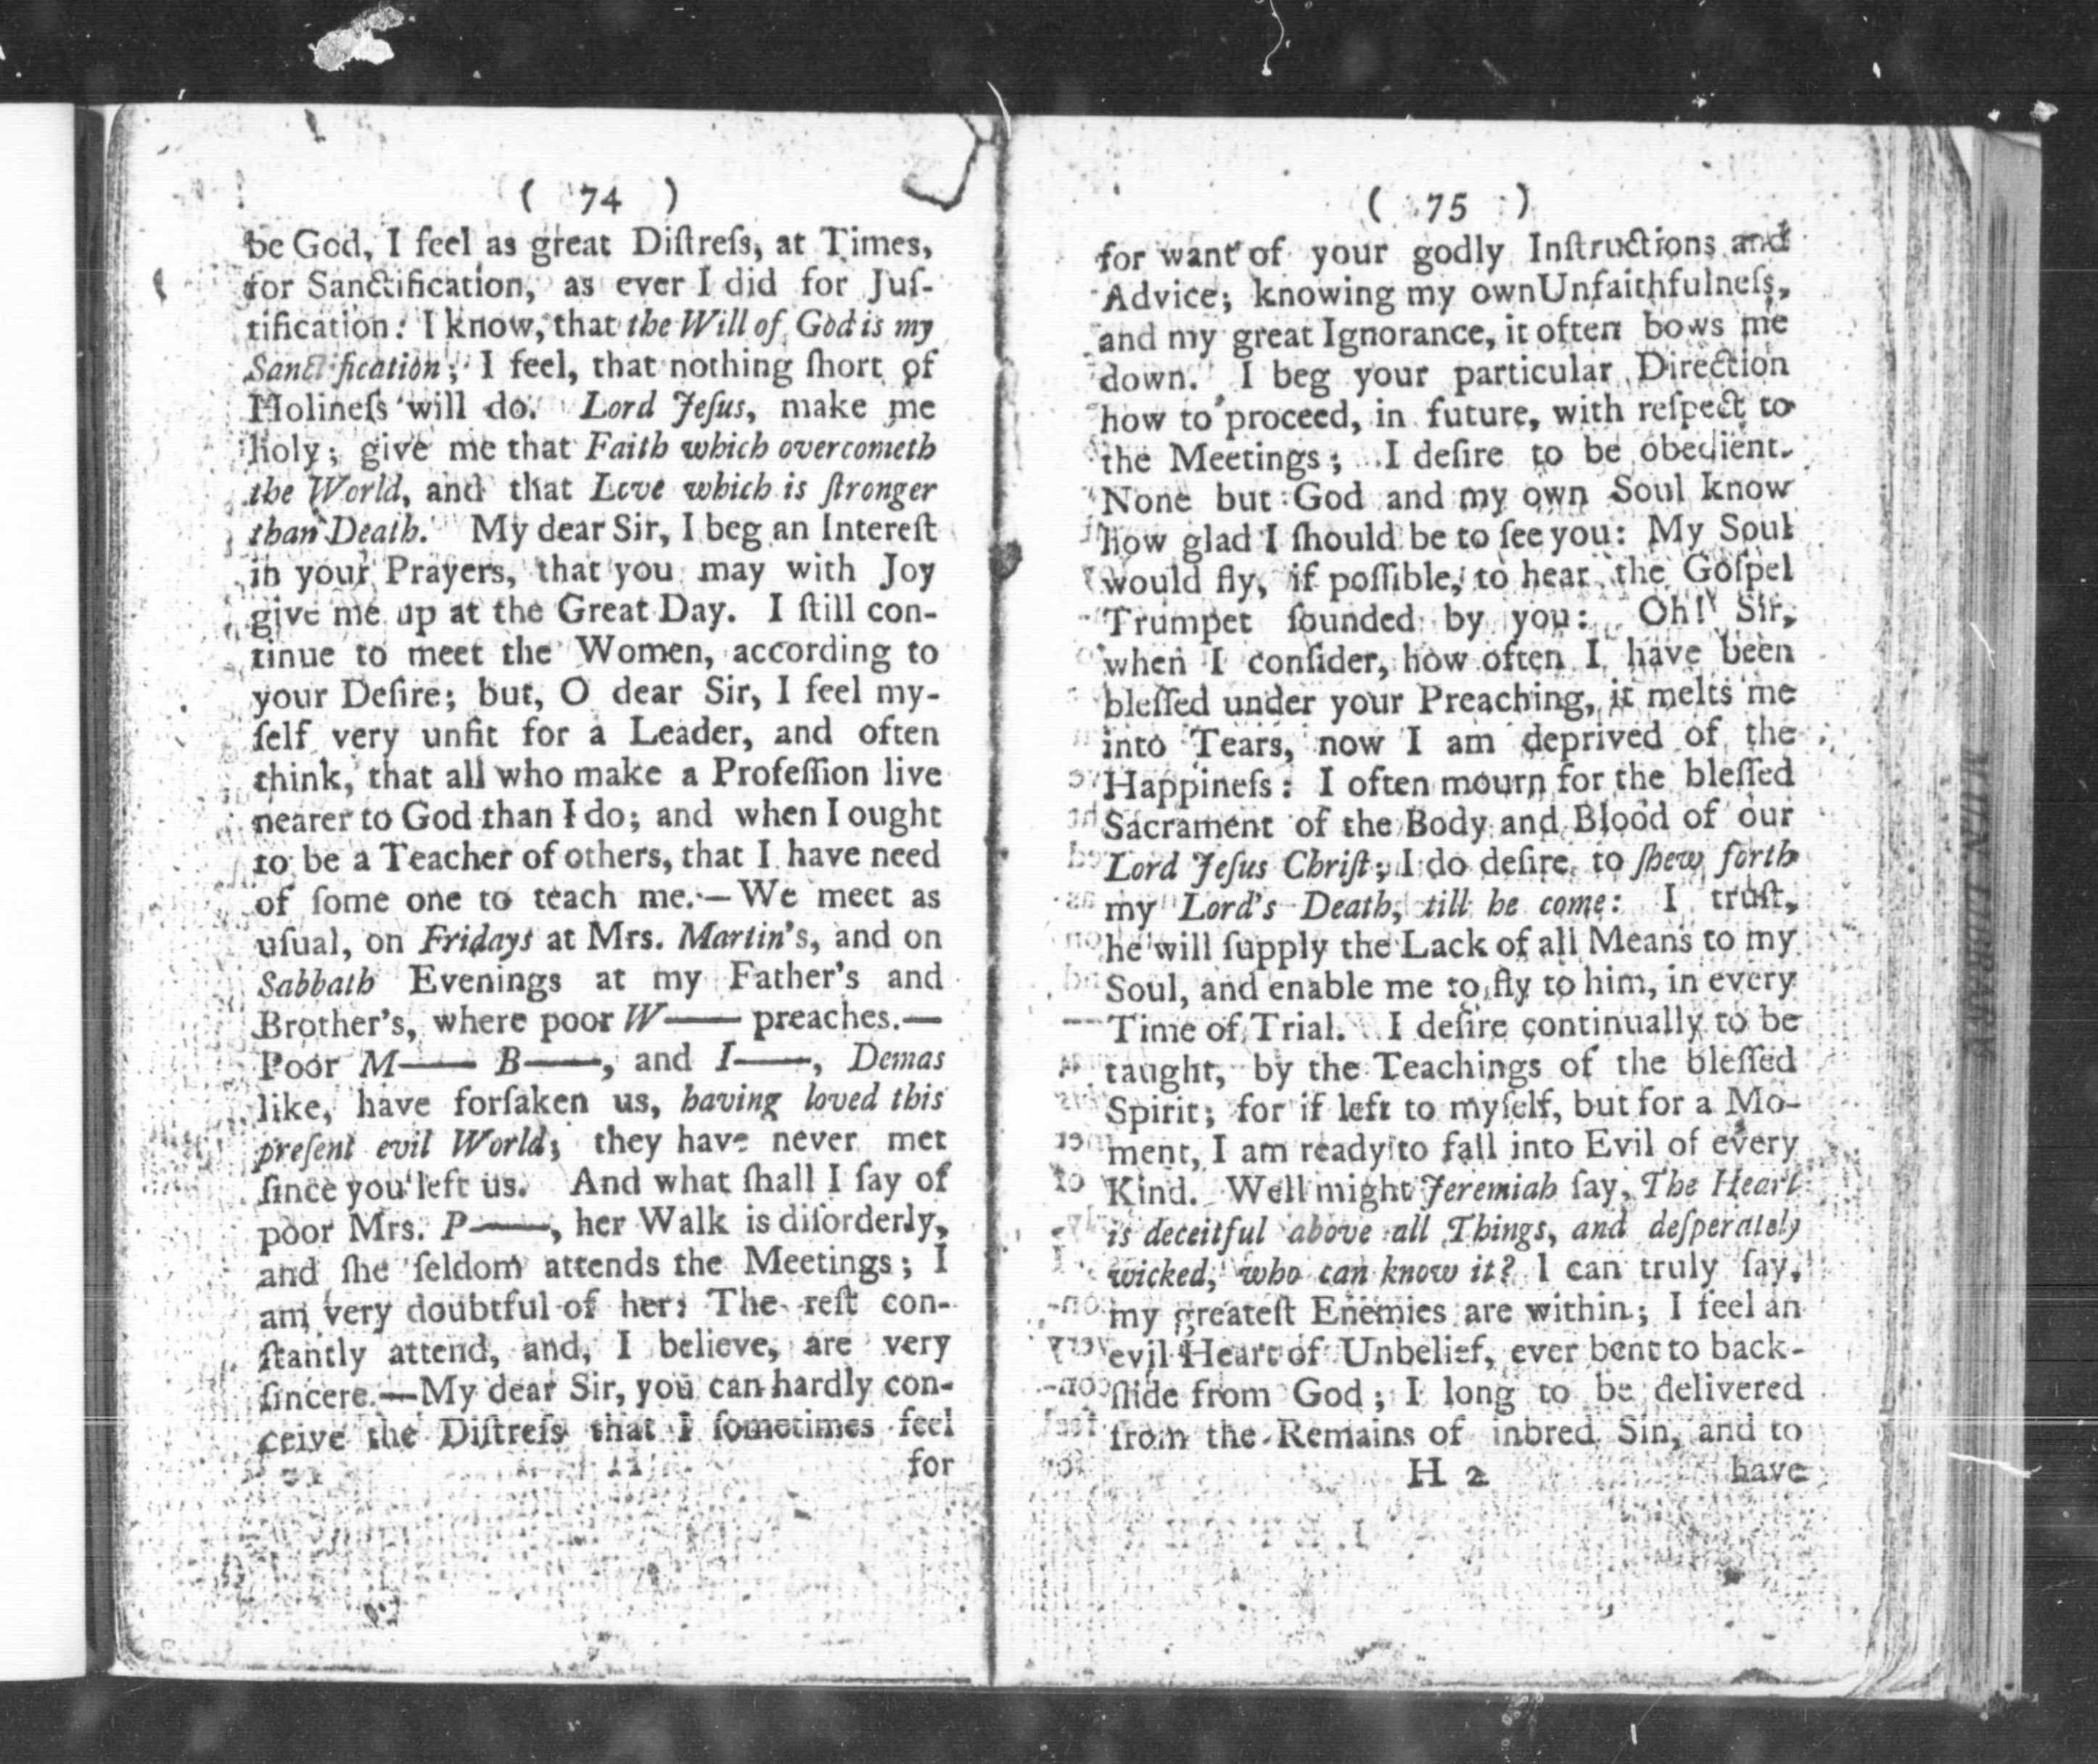 ( 74 )
be God, I feel as great Diſtreſs, at Times,
for Sanctification, as ever I did for Juſ-
tification: I know, that the Will of God is my
Sanctification; I feel, that nothing ſhort of
Holineſs will do. Lord Jeſus, make me
holy; give me that Faith which overcometh
the World, and that Love which is ſtronger
than Death. My dear Sir, I beg an Intereſt
in your Prayers, that you may with Joy
give me up at the Great Day. I ſtill con-
tinue to meet the Women, according to
your Deſire; but, O dear Sir, I feel my-
ſelf very unfit for a Leader, and often
think, that all who make a Profeſſion live
nearer to God than I do; and when I ought
to be a Teacher of others, that I have need
of ſome one to teach me.—We meet as
uſual, on Fridays at Mrs. Martin's, and on
Sabbath Evenings at my Father's and
Brother's, where poor W—— preaches.—
Poor M—— B——, and I——, Demas
like, have forſaken us, having loved this
preſent evil World; they have never met
ſince you left us. And what ſhall I ſay of
poor Mrs. P——, her Walk is diſorderly,
and ſhe ſeldom attends the Meetings; I
am very doubtful of her: The reſt con-
ſtantly attend, and, I believe, are very
ſincere.—My dear Sir, you can hardly con-
ceive the Diſtreſs that I ſometimes feel
for
( 75 )
for want of your godly Inſtructions and
Advice; knowing my own Unfaithfulneſs,
and my great Ignorance, it often bows me
down. I beg your particular Direction
how to proceed, in future, with reſpect to
the Meetings; I deſire to be obedient.
None but God and my own Soul know
how glad I ſhould be to ſee you: My Soul
would fly, if poſſible, to hear the Goſpel
Trumpet ſounded by you: Oh! Sir,
when I conſider, how often I have been
bleſſed under your Preaching, it melts me
into Tears, now I am deprived of the
Happineſs: I often mourn for the bleſſed
Sacrament of the Body and Blood of our
Lord Jeſus Chriſt; I do deſire to ſhew forth
my Lord's Death, till he come: I truſt,
he will ſupply the Lack of all Means to my
Soul, and enable me to fly to him, in every
Time of Trial. I deſire continually to be
taught, by the Teachings of the bleſſed
Spirit; for if left to myſelf, but for a Mo-
ment, I am ready to fall into Evil of every
Kind. Well might Jeremiah ſay, The Heart
is deceitful above all Things, and deſperately
wicked, who can know it? I can truly ſay,
my greateſt Enemies are within; I feel an
evil Heart of Unbelief, ever bent to back-
ſlide from God; I long to be delivered
from the Remains of inbred Sin, and to
H 2 have